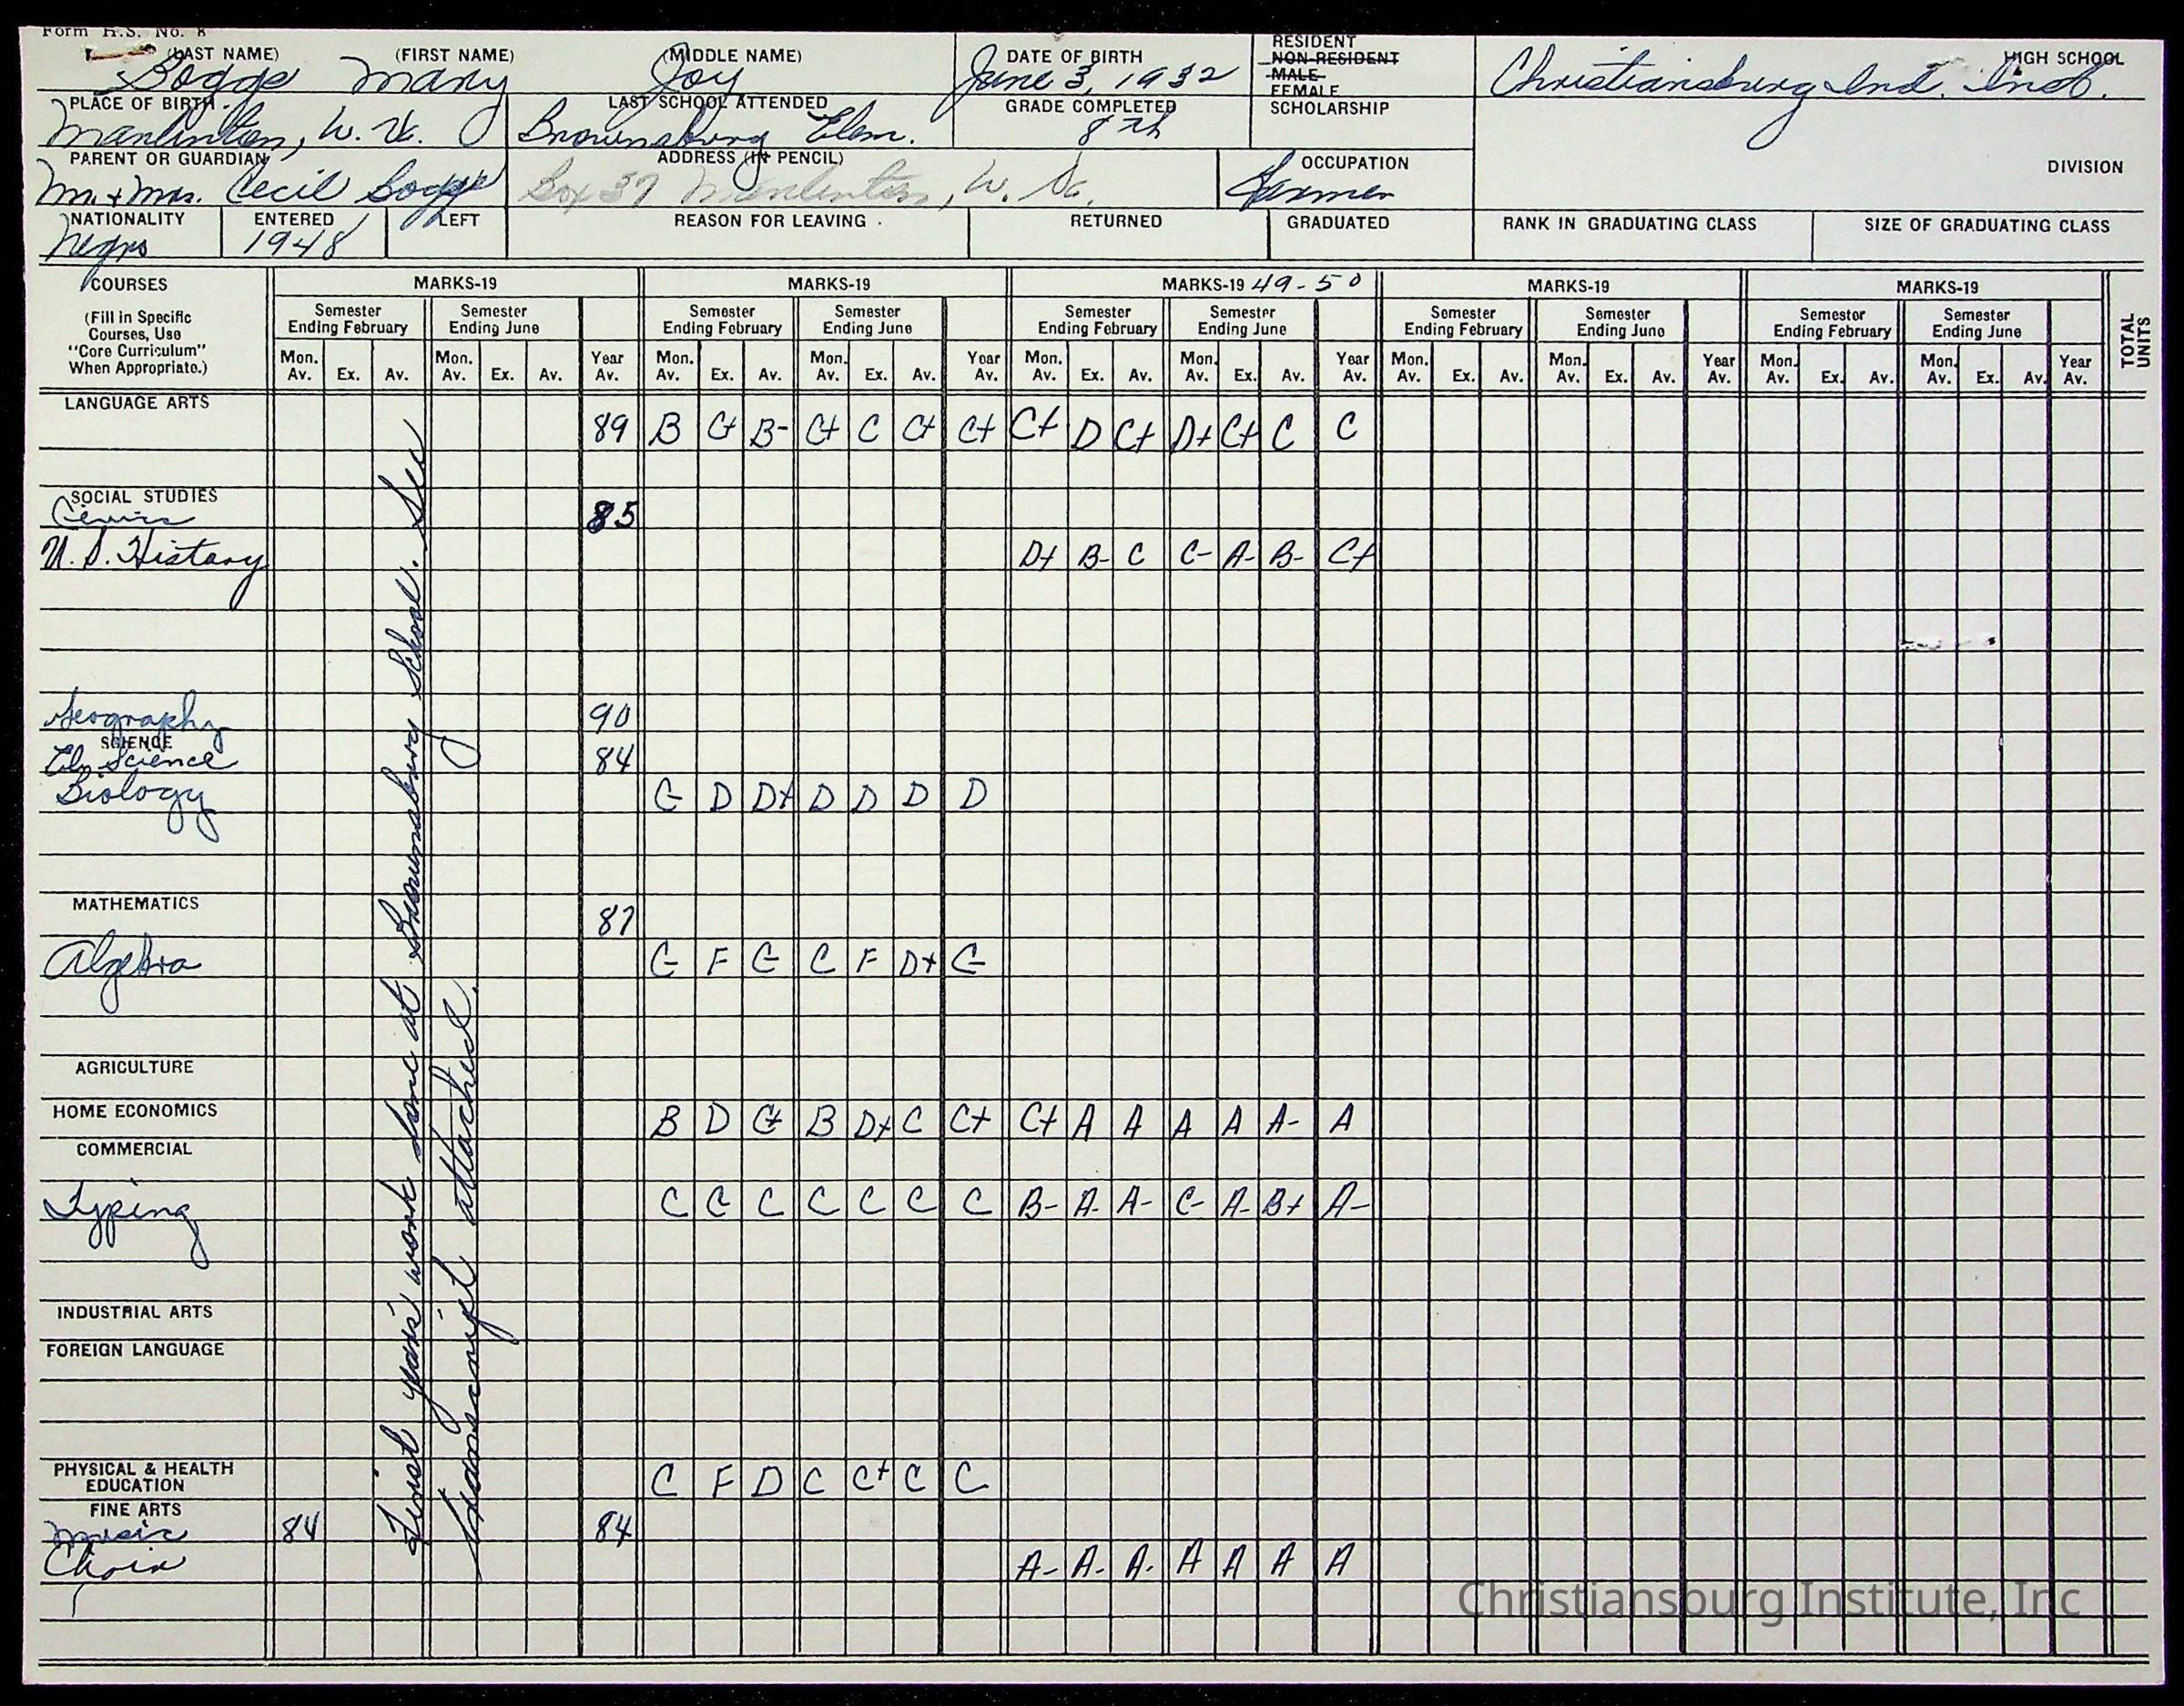 Form H.S. No. 8
(LAST NAME) (FIRST NAME) (MIDDLE NAME) DATE OF BIRTH RESIDENT NON-RESIDENT MALE FEMALE HIGH SCHOOL
Boggs Mary Joy June 3, 1932 Christiansburg Ind. Inst.
PLACE OF BIRTH LAST SCHOOL ATTENDED GRADE COMPLETED SCHOLARSHIP
Marlinton, W. Va. Brownsburg Elem. 8th
PARENT OR GUARDIAN ADDRESS (IN PENCIL) OCCUPATION DIVISION
Mr. + Mrs. Cecil Boggs Box 37 Marlinton, W. Va. Farmer
NATIONALITY ENTERED LEFT REASON FOR LEAVING RETURNED GRADUATED RANK IN GRADUATING CLASS SIZE OF GRADUATING CLASS
Negro 1948
COURSES MARKS-19 MARKS-19 MARKS-19 49-50 MARKS-19 MARKS-19
(Fill in Specific Courses, Use "Core Curriculum" When Appropriate.)
Semester Ending February Semester Ending June Semester Ending February Semester Ending June Semester Ending February Semester Ending June Semester Ending February Semester Ending June Semester Ending February Semester Ending June TOTAL UNITS
Mon. Av. Ex. Av. Mon. Av. Ex. Av. Year Av. Mon. Av. Ex. Av. Mon. Av. Ex. Av. Year Av. Mon. Av. Ex. Av. Mon. Av. Ex. Av. Year Av. Mon. Av. Ex. Av. Mon. Av. Ex. Av. Year Av. Mon. Av. Ex. Av. Mon. Av. Ex. Av. Year Av.
LANGUAGE ARTS
89 B C+ B- C+ C C+ C+ C+ D C+ D+ C+ C C
SOCIAL STUDIES
Civics 85
U. S. History D+ B- C C- A- B- C+
Geography 90
SCIENCE
El. Science 84
Biology C- D D+ D D D D
MATHEMATICS
87
Algebra C- F C- C F D+ C-
AGRICULTURE
HOME ECONOMICS B D C+ B D+ C C+ C+ A A A A A- A
COMMERCIAL
Typing C C C C C C C B- A- A- C- A- B+ A-
INDUSTRIAL ARTS
FOREIGN LANGUAGE
PHYSICAL & HEALTH EDUCATION C F D C C+ C C
FINE ARTS
Music 84 84
Choir A- A- A- A A A A
First years' work done at Brownsburg School. See
transcript attached.
Christiansburg Institute, Inc